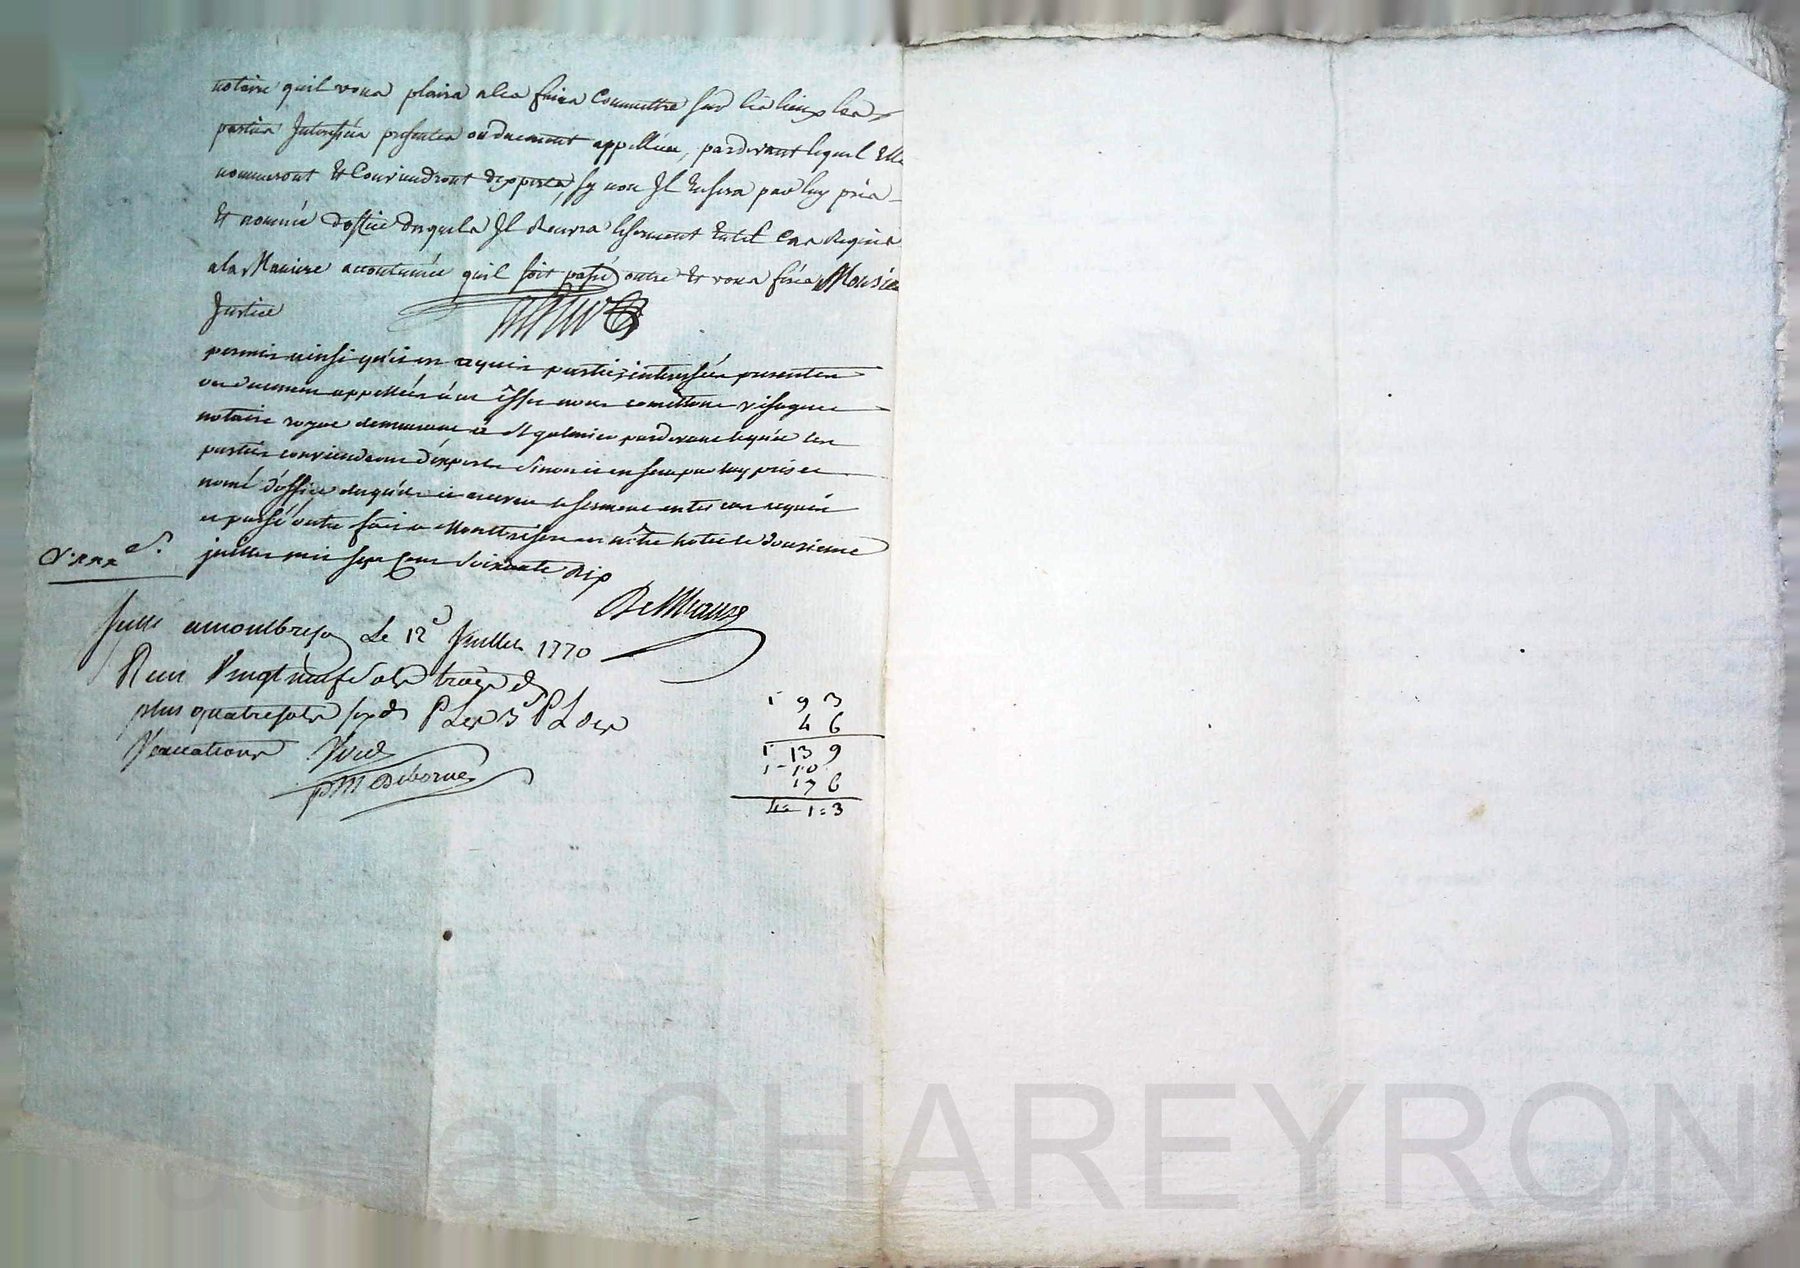 notaire quil vous plaira a les faire Commettre sur les lieux les
parties Interessées presentes ou duement appellées, pardevant lequel Elle
nommeront Et Conviendront dexperts, sy non Il En sera par luy pris
Et nommés doffice desquels Il Recevra le serment Entel Cas Requis
a la Maniere accoutumée quil soit passé outre Et vous féres Monsieur
Justice
permis ainsi qu'il est requis parties interessées presentes
ou duement appellées à cet effet nous comettons
notaire royal demeurant à St galmier pardevant lequel les
parties conviendront d'experts sinon il en sera par luy pris et
nomé d'office desquels il recevra le serment en tel cas requis
et passé outre fait a Montbrison en notre hotel le douzieme
juillet mil sept Cent Soixante dix
DeMeaux
scellé a montbrison Le 12e Juillet 1770
Recu Vingt neuf sols trois d
plus quatre sols six d
Vaccations
1 9 3
4 6
1 13 9
1 - 10
17 6
4 = 1 = 3
Pascal CHAREYRON